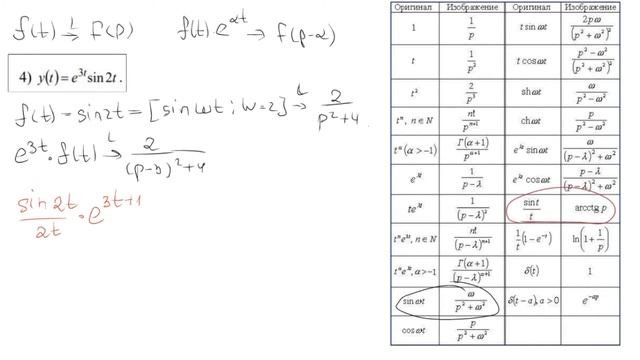 f(t) →ᴸ F(p) f(t)e^{αt} → F(p-α)
4) y(t)=e^{3t}sin2t.
f(t) - sin2t = [sin ωt; ω=2] →ᴸ 2/(p²+4)
e^{3t}·f(t) →ᴸ 2/((p-3)²+4)
sin2t/2t · e^{3t+1}
Оригинал Изображение Оригинал Изображение
1 1/p t sin ωt 2pω/(p²+ω²)²
t 1/p² t cos ωt (p²-ω²)/(p²+ω²)²
t² 2/p³ shωt ω/(p²-ω²)
tⁿ, n∈N n!/p^{n+1} chωt p/(p²-ω²)
t^α (α>-1) Γ(α+1)/p^{α+1} e^{λt} sin ωt ω/((p-λ)²+ω²)
e^{λt} 1/(p-λ) e^{λt} cos ωt (p-λ)/((p-λ)²+ω²)
te^{λt} 1/(p-λ)² sin t/t arcctg p
tⁿe^{λt}, n∈N n!/(p-λ)^{n+1} 1/t(1-e^{-t}) ln(1+1/p)
t^αe^{λt}, α>-1 Γ(α+1)/(p-λ)^{α+1} δ(t) 1
sin ωt ω/(p²+ω²) δ(t-a), a>0 e^{-ap}
cos ωt p/(p²+ω²)